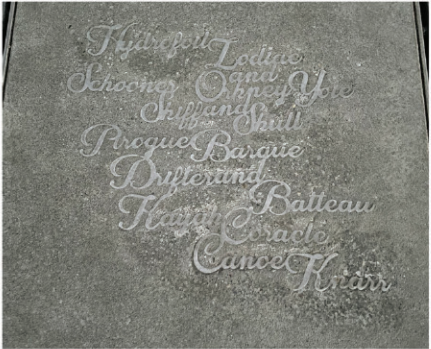 Hydrofoil Zodiac
Schooner and Orkney Yole
Skiff and Skull
Pirogue Barque
Drifter and Batteau
Kayak Coracle
Canoe Knarr